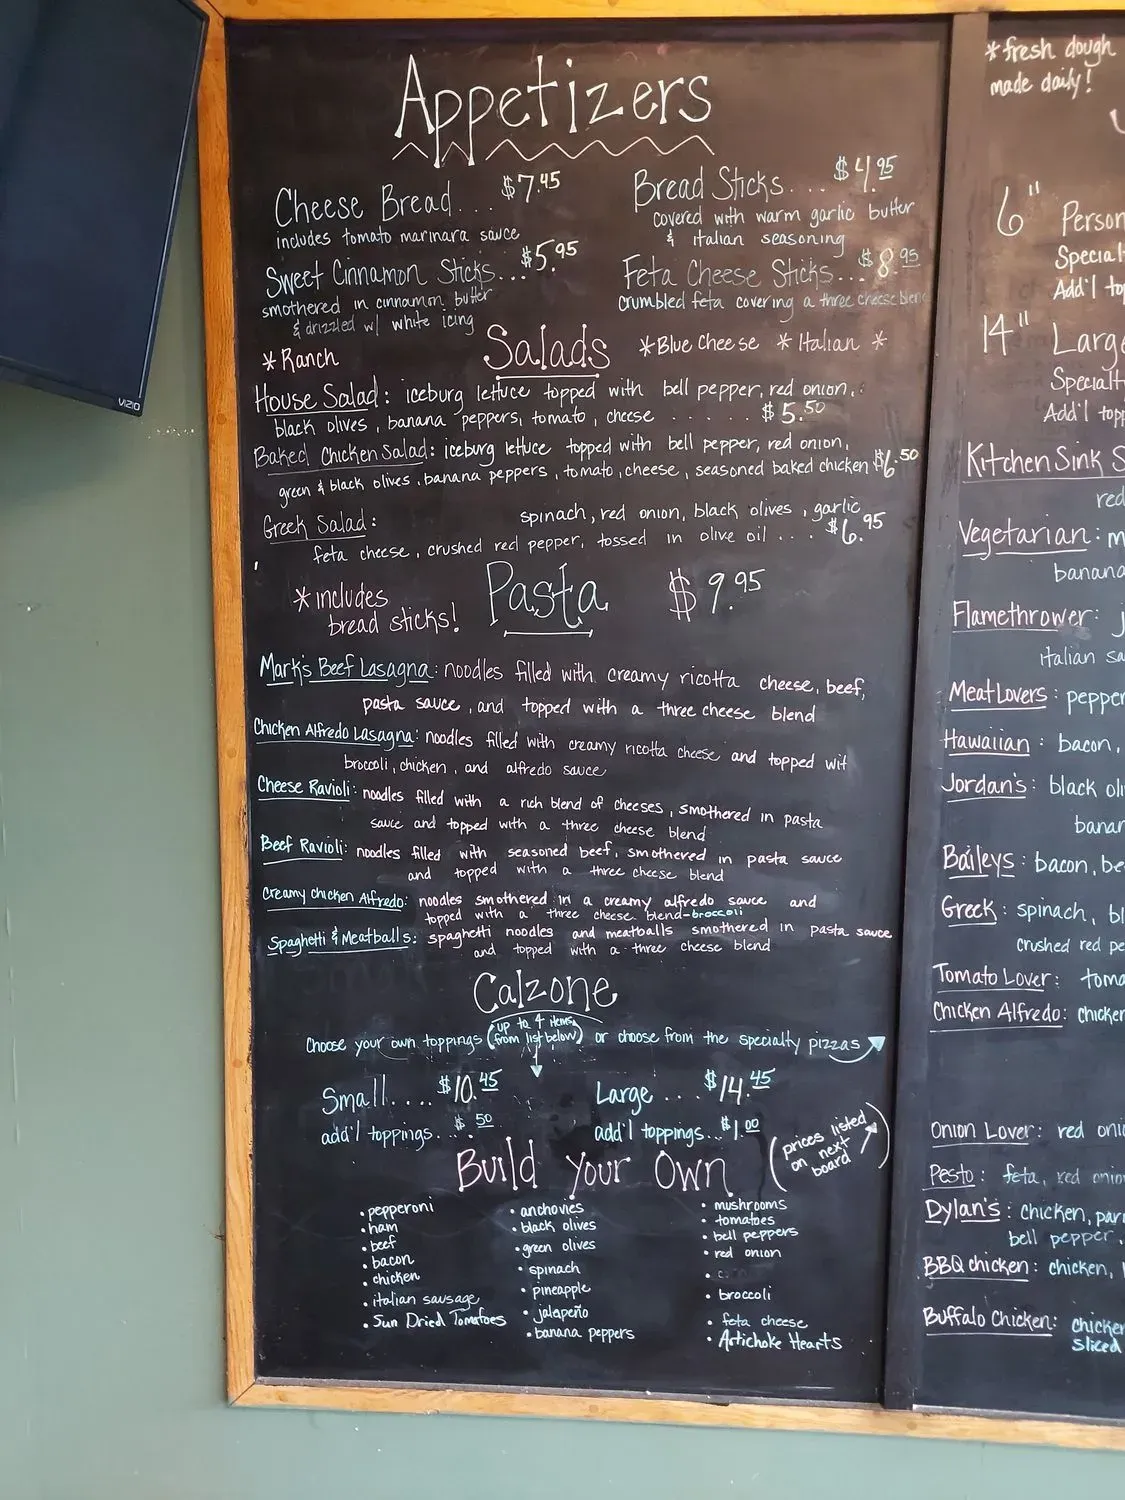 Appetizers
Cheese Bread... $7.45
includes tomato marinara sauce
Bread Sticks... $4.95
covered with warm garlic butter
& italian seasoning
Sweet Cinnamon Sticks... $5.95
smothered in cinnamon butter
& drizzled w/ white icing
Feta Cheese Sticks... $8.95
crumbled feta covering a three cheese blend
Salads
*Ranch
*Blue Cheese * Italian *
House Salad: iceburg lettuce topped with bell pepper, red onion,
black olives, banana peppers, tomato, cheese ...... $5.50
Baked Chicken Salad: iceburg lettuce topped with bell pepper, red onion,
green & black olives, banana peppers, tomato, cheese, seasoned baked chicken $6.50
Greek Salad: spinach, red onion, black olives, garlic
feta cheese, crushed red pepper, tossed in olive oil ... $6.95
*includes
bread sticks!
Pasta $9.95
Mark's Beef Lasagna: noodles filled with creamy ricotta cheese, beef,
pasta sauce, and topped with a three cheese blend
Chicken Alfredo Lasagna: noodles filled with creamy ricotta cheese and topped wit
broccoli, chicken, and alfredo sauce
Cheese Ravioli: noodles filled with a rich blend of cheeses, smothered in pasta
sauce and topped with a three cheese blend
Beef Ravioli: noodles filled with seasoned beef, smothered in pasta sauce
and topped with a three cheese blend
Creamy chicken Alfredo: noodles smothered in a creamy alfredo sauce and
topped with a three cheese blend-broccoli
Spaghetti & Meatballs: spaghetti noodles and meatballs smothered in pasta sauce
and topped with a three cheese blend
Calzone
Choose your own toppings (up to 4 items from list below) or choose from the specialty pizzas
Small.... $10.45
add'l toppings.... $.50
Large ... $14.45
add'l toppings... $1.00
Build Your Own
(prices listed
on next
board)
• pepperoni
• ham
• beef
• bacon
• chicken
• italian sausage
• Sun Dried Tomatoes
• anchovies
• black olives
• green olives
• spinach
• pineapple
• jalapeño
• banana peppers
• mushrooms
• tomatoes
• bell peppers
• red onion
• broccoli
• feta cheese
• Artichoke Hearts
*fresh dough
made daily!
6" Person
Special
Add'l top
14" Large
Specialt
Add'l topp
Kitchen Sink S
red
Vegetarian: m
banana
Flamethrower: j
italian sa
Meat Lovers: pepper
Hawaiian: bacon,
Jordan's: black oli
banan
Baileys: bacon, be
Greek: spinach, bl
crushed red pe
Tomato Lover: toma
Chicken Alfredo: chicken
Onion Lover: red oni
Pesto: feta, red onion
Dylan's: chicken, par
bell pepper,
BBQ chicken: chicken,
Buffalo Chicken: chicken
sliced
VIZIO